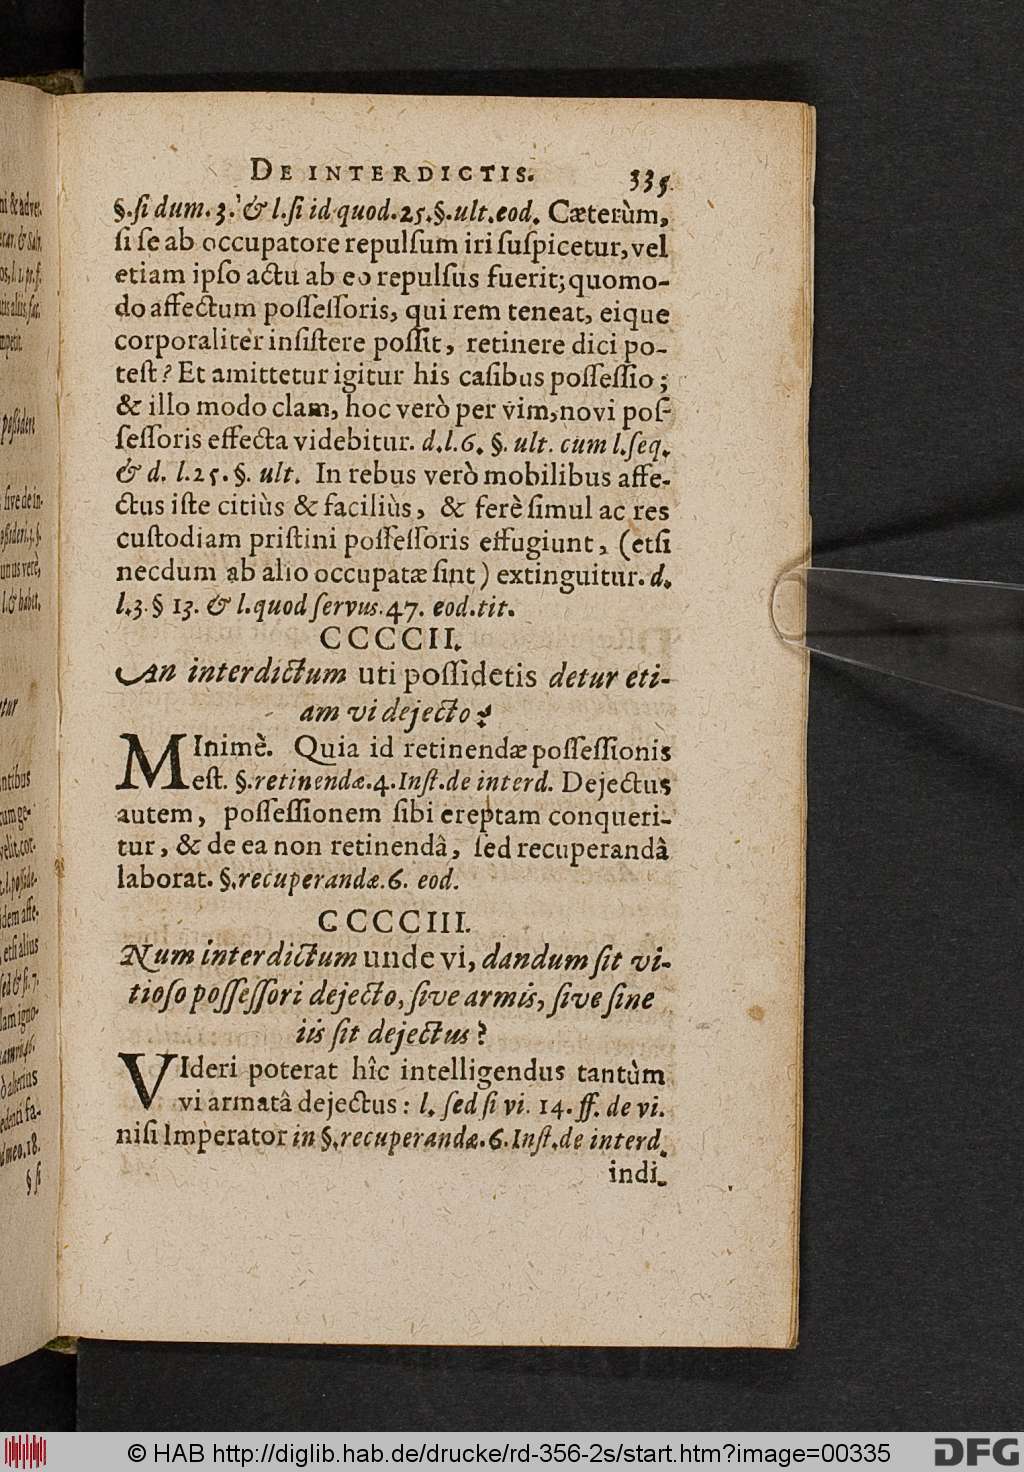 DE INTERDICTIS. 335.
§.ſi dum.3. & l.ſi id quod.25.§.ult.eod. Cæterùm,
ſi ſe ab occupatore repulſum iri ſuſpicetur, vel
etiam ipſo actu ab eo repulſus fuerit; quomo-
do affectum poſſeſſoris, qui rem teneat, eique
corporaliter inſiſtere poſſit, retinere dici po-
teſt? Et amittetur igitur his caſibus poſſeſſio;
& illo modo clam, hoc verò per vim, novi poſ-
ſeſſoris effecta videbitur. d.l.6. §. ult. cum l.ſeq.
& d. l.25. §. ult. In rebus verò mobilibus affe-
ctus iſte citiùs & faciliùs, & ferè ſimul ac res
cuſtodiam priſtini poſſeſſoris effugiunt, (etſi
necdum ab alio occupatæ ſint) extinguitur. d.
l.3. § 13. & l.quod ſervus.47. eod.tit.
CCCCII.
An interdictum uti poſſidetis detur eti-
am vi dejecto?
MInimè. Quia id retinendæ poſſeſſionis
eſt. §.retinendæ.4.Inſt.de interd. Dejectus
autem, poſſeſſionem ſibi ereptam conqueri-
tur, & de ea non retinendâ, ſed recuperandâ
laborat. §.recuperandæ.6. eod.
CCCCIII.
Num interdictum unde vi, dandum ſit vi-
tioſo poſſeſſori dejecto, ſive armis, ſive ſine
iis ſit dejectus?
VIderi poterat hîc intelligendus tantùm
vi armatâ dejectus: l. ſed ſi vi. 14. ff. de vi.
niſi Imperator in §.recuperandæ.6.Inſt.de interd.
indi-
© HAB http://diglib.hab.de/drucke/rd-356-2s/start.htm?image=00335
DFG